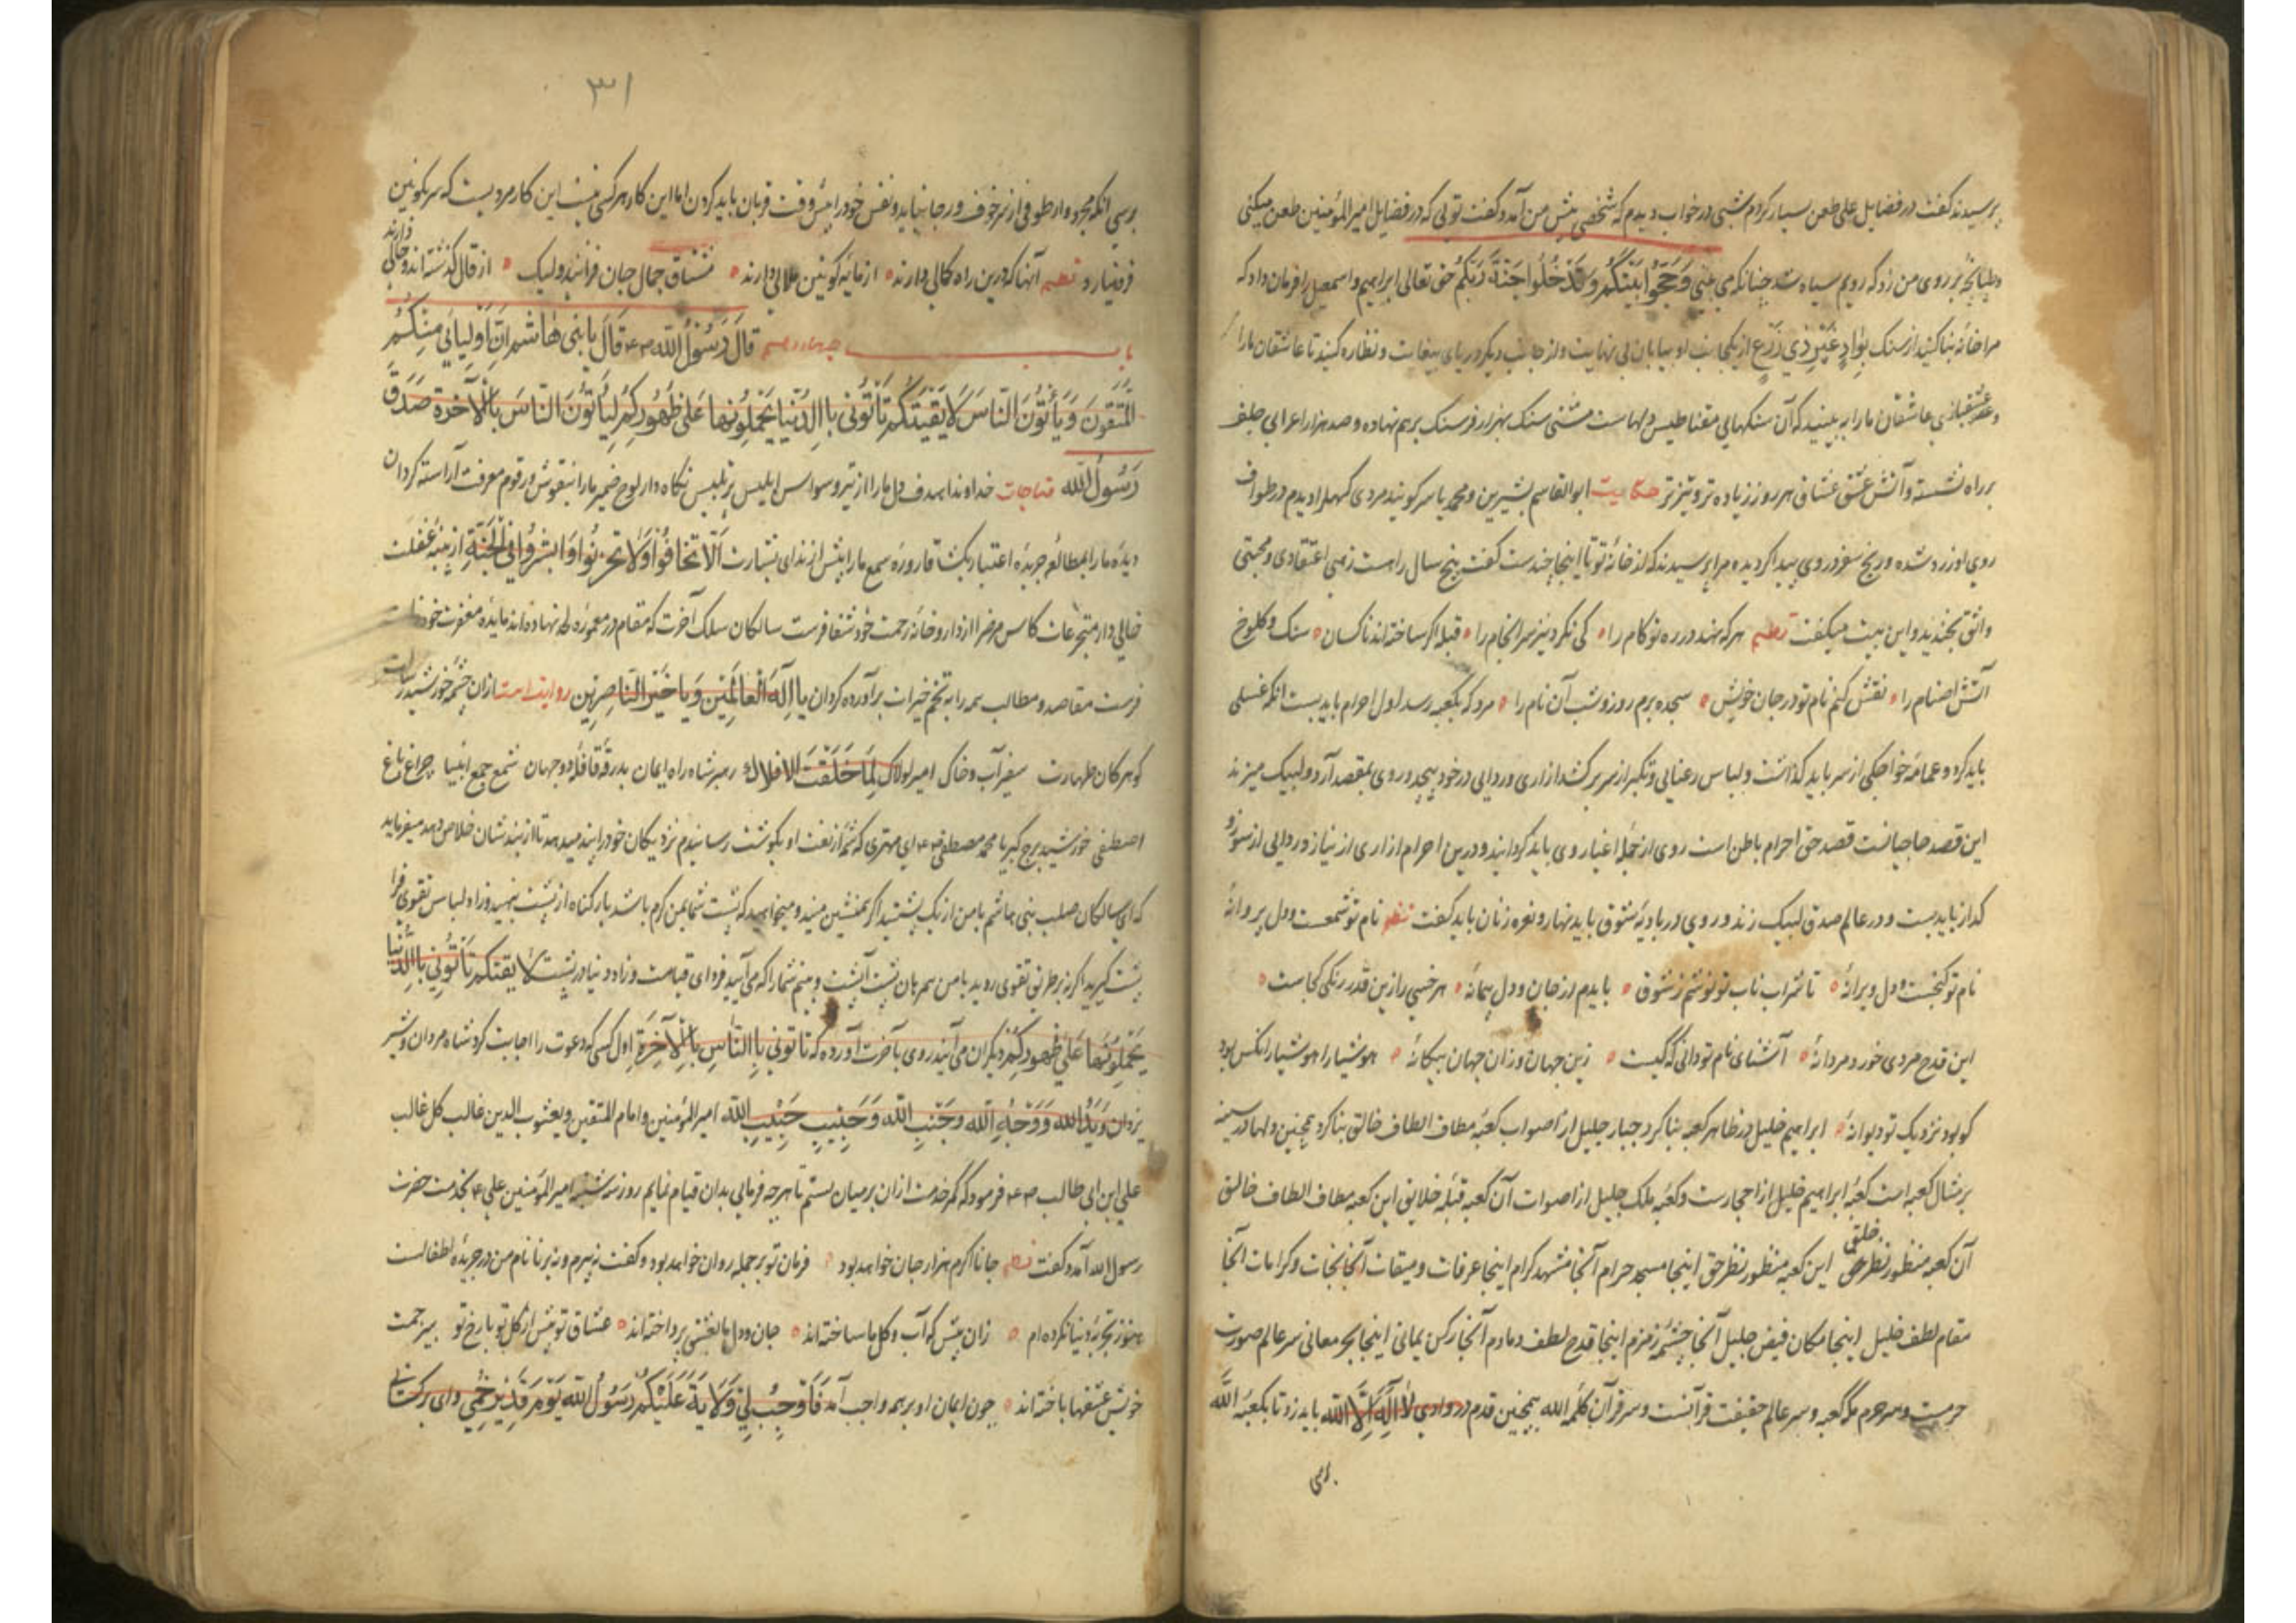 پرسیدند گفت در فضایل علی طعن بسیار کردم شبی در خواب دیدم که شخصی پیش من آمد و گفت تویی که در فضایل امیر المؤمنین طعن میکنی
و طپانچه بر روی من زد که رویم سیاه شد چنانکه می بینی وَحَجُّوا بَیْتَکُمْ وَتَدْخُلُوا جَنَّةَ رَبِّکُمْ حق تعالی ابراهیم و اسمعیل را فرمان داد که
مرا خانه بنا کنید از سنک بِوادٍ غَیْرِ ذِی زَرْعٍ از یکجانب او بیابان بی نهایت و از جانب دیکر دریای بیغایت و نظاره کنید تا عاشقان مارا
و عشقبازی عاشقان مارا به بینید که آن سنکهایی مقناطیس دلهاست مشتی سنک بهزار فرسنک بر هم نهاده و صد هزار اعرابی جلف
بر راه نشسته و آتش عشق عشاق هر روز زیاده تر و تیزتر حکایت ابوالقاسم بشیرین و محمد یاسر کویند مردی کهل را دیدم در طواف
روی او زرد شده و رنج سفر در وی پیدا کردیده مرا پرسیدند که از خانه تو تا اینجا چندست کفت پنج سال راهست زهی اعتقادی و محبتی
واثق بخندید و این بیت میکفت نظم هر که نهد در ره تو کام را کی نکرد نیز سرانجام را قبله اکر ساخته اند ناکسان سنک و کلوخ
آتش اصنام را نقش کنم نام تو در جان خویش سجده برم روز و شب آن نام را مرد که بکعبه رسد اول احرام باید بست آنکه غسلی
باید کرد و عمامه خواجکی از سر باید کذاشت و لباس رعنایی و تکبر از سر برکشد ازاری و ردایی در خود پیچد و روی بمقصد آرد و لبیک میزند
این قصد حاجیانست قصد حق احرام باطن است روی از جمله اغیار وی باید کردانید و درین احرام ازاری از نیاز و ردایی از سوز و
کداز باید بست و در عالم صدق لبیک زند و روی در بادیه شوق باید نهاد و نعره زنان باید کفت نظم نام تو شمعست و دل پروانه
نام تو کنجست و دل ویرانه تا شراب ناب تو نوشم ز شوق بایدم از جان و دل پیمانه هر خسی را زین قدر رنکی کجاست
این قدح مردی خورد مردانه آشنای نام تو دانی که کیست زین جهان و زان جهان بیکانه هوشیارا هوشیار آنکس بود
کو بود نزدیک تو دیوانه ابراهیم خلیل در ظاهر کعبه بنا کرد جبار جلیل از اصواب کعبه مطاف الطاف خالق بنا کرد همچنین دلها در سینه
بر مثال کعبه است کعبه ابراهیم خلیل از احجارست و کعبه ملک جلیل از اصوات آن کعبه قبله خلایق این کعبه مطاف الطاف خالق
آن کعبه منظور نظر خلق این کعبه منظور نظر حق اینجا مسجد حرام آنجا مشهد کرام اینجا عرفات و میقات آنجا نجات و کرامات آنجا
مقام لطف خلیل اینجا مکان فیض جلیل آنجا چشمه زمزم اینجا قدح لطف دمادم آنجا رکن یمانی اینجا بحر معانی سر عالم صورت
حرمت و سر حرم مکه کعبه و سر عالم حقیقت قرآنست و سر قرآن کلمه الله همچنین قدم در وادی لا اله الا الله باید زد تا بکعبه الله
برسی
۳۱
برسی آنکه مجرد وار طوفی از سر خوف و رجا بنماید و نفس خود را پیش وقت قربان باید کردن اما این کار هر کسی نیست این کار مردیست که سر بکونین
فرو نیارد نظم آنها که درین راه کمالی دارند از مایه کونین ملالی دارند مشتاق جمال جان فزایند ولیک از قال کذشته اند و حالی دارند
باب چهاردهم قَالَ رَسُولُ اللّٰه قَالَ یا بَنی هاشم اِنَّ اَولیائی مِنْکُمْ
الْمُتَّقُونَ وَ یَأتُونَ النّاسَ لا یَقِیَنَّکُمْ تَأتُونی باالدُّنیا یَحْمِلُونَها عَلی ظُهُورِکُمْ لِیَأتُونَ النّاسَ بِالْآخِرة صَدَقَ
رَسُولُ اللّٰه مناجات خداوندا هدف دل مارا از تیر وسواس ابلیس پرتلبیس نکاه دار لوح ضمیر مارا بنقوش و رقوم معرفت آراسته کردان
دیده مارا بمطالعه جریده اعتبار بکشا قاروره سمع مارا پیش از ندای بشارت اَلّا تَخافُوا وَلا تَحْزَنُوا وَاَبْشِرُوا فِی الْجَنَّةِ از پنبه غفلت
خالی دار متجرعات کاس مرض را از داروخانه رحمت خود شفا فرست سالکان سلک آخرت که مقام در معموره لحد نهاده اند مایده مغفرت خود
فرست مقاصد و مطالب همه را به تخم خیرات برآورده کردان یا اِلٰهَ الْعالَمِیْنَ وَ یا خَیْرَ النّاصِرِیْن روایتست از ان چشمه خورشید رسالت
کوهر کان طهارت سفیر آب و خاک امیر لولاک لَمَا خَلَقْتَ الْاَفْلاکْ رهبر شاه راه ایمان بدرقه قافله دو جهان شمع جمع انبیا چراغ باغ
اصطفی خورشید برج کبریا محمد مصطفی ای مهتری که شمه از نعت او بکوشت رسانیدم نزدیکان خود را پند میدهد تا از بند شان خلاص دهد میفرماید
که ای سالکان صلب بنی هاشم با من از یک پشتید اکر بمنشین مینهید و میخواهید که پشت شما بمن کرم باشد بار کناه از پشت بنهید و زاد و لباس تقوی فرا
پشت کیرید اکر نه بر طریق تقوی روید با من همرهان پشت آپشت و منم شمارا که می آیید فردای قیامت و زاد دنیا در پشت لا یَقِیَنَّکُمْ تَأتُونی باالدُّنیا
یَحْمِلُونَها عَلی ظُهُورِکُمْ دیکران می آیند روی بآخرت آورده که تا تونی بِالنّاسِ بِالْآخِرَةِ اول کسی که دعوت را اجابت کرد شاه مردان و شیر
یزدان وَ یَدُ الله وَ وَجْهُ اللّٰه وَ جَنْبِ اللّٰه وَ حَبِیْبِ حَبِیْبِ اللّٰه امیر المؤمنین و امام المتقین و یعسوب الدین غالب کل غالب
علی ابن ابی طالب فرمود که کمر خدمت از ان بر میان بستم تا بهرچه فرمایی بدان قیام نمایم روز سه شنبه امیر المؤمنین علی بخدمت حضرت
رسول الله آمد و کفت نظم جانا اکرم هزار جان خواهد بود فرمان تو بر جمله روان خواهد بود و کفت نه پیرم و نه برنا نام من در جریده لطفالست
هنوز تجربه دنیا نکرده ام زان پیش که آب و کل ما ساخته اند جان و دل ما بعشق پرداخته اند عشاق تو پیش از کل تو با رخ تو بی زحمت
خویش عشقها باخته اند چون ایمان او بر همه واجب آمد فَاَوْجِبْ لِی وَلایَةَ عَلَیْکُمْ رَسُولُ اللّٰهِ یَوْمَ غَدِیْرِ خُمّی وای بر کسانی